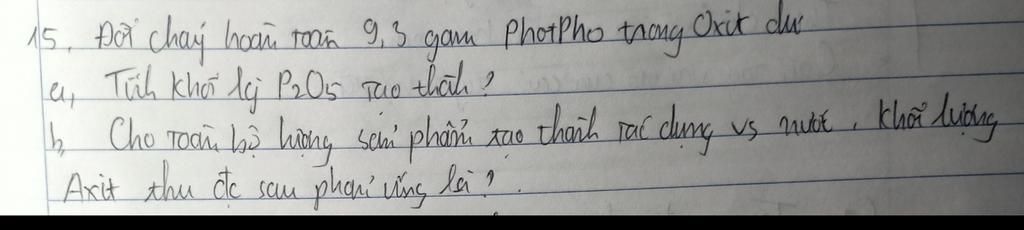 15, Đốt cháy hoàn toàn 9,3 gam PhotPho trong Oxit dư
a, Tính khối lg P2O5 tạo thành?
b, Cho toàn bộ lượng sản phẩm tạo thành tác dụng vs nước, khối lượng
Axit thu đc sau phản ứng là?